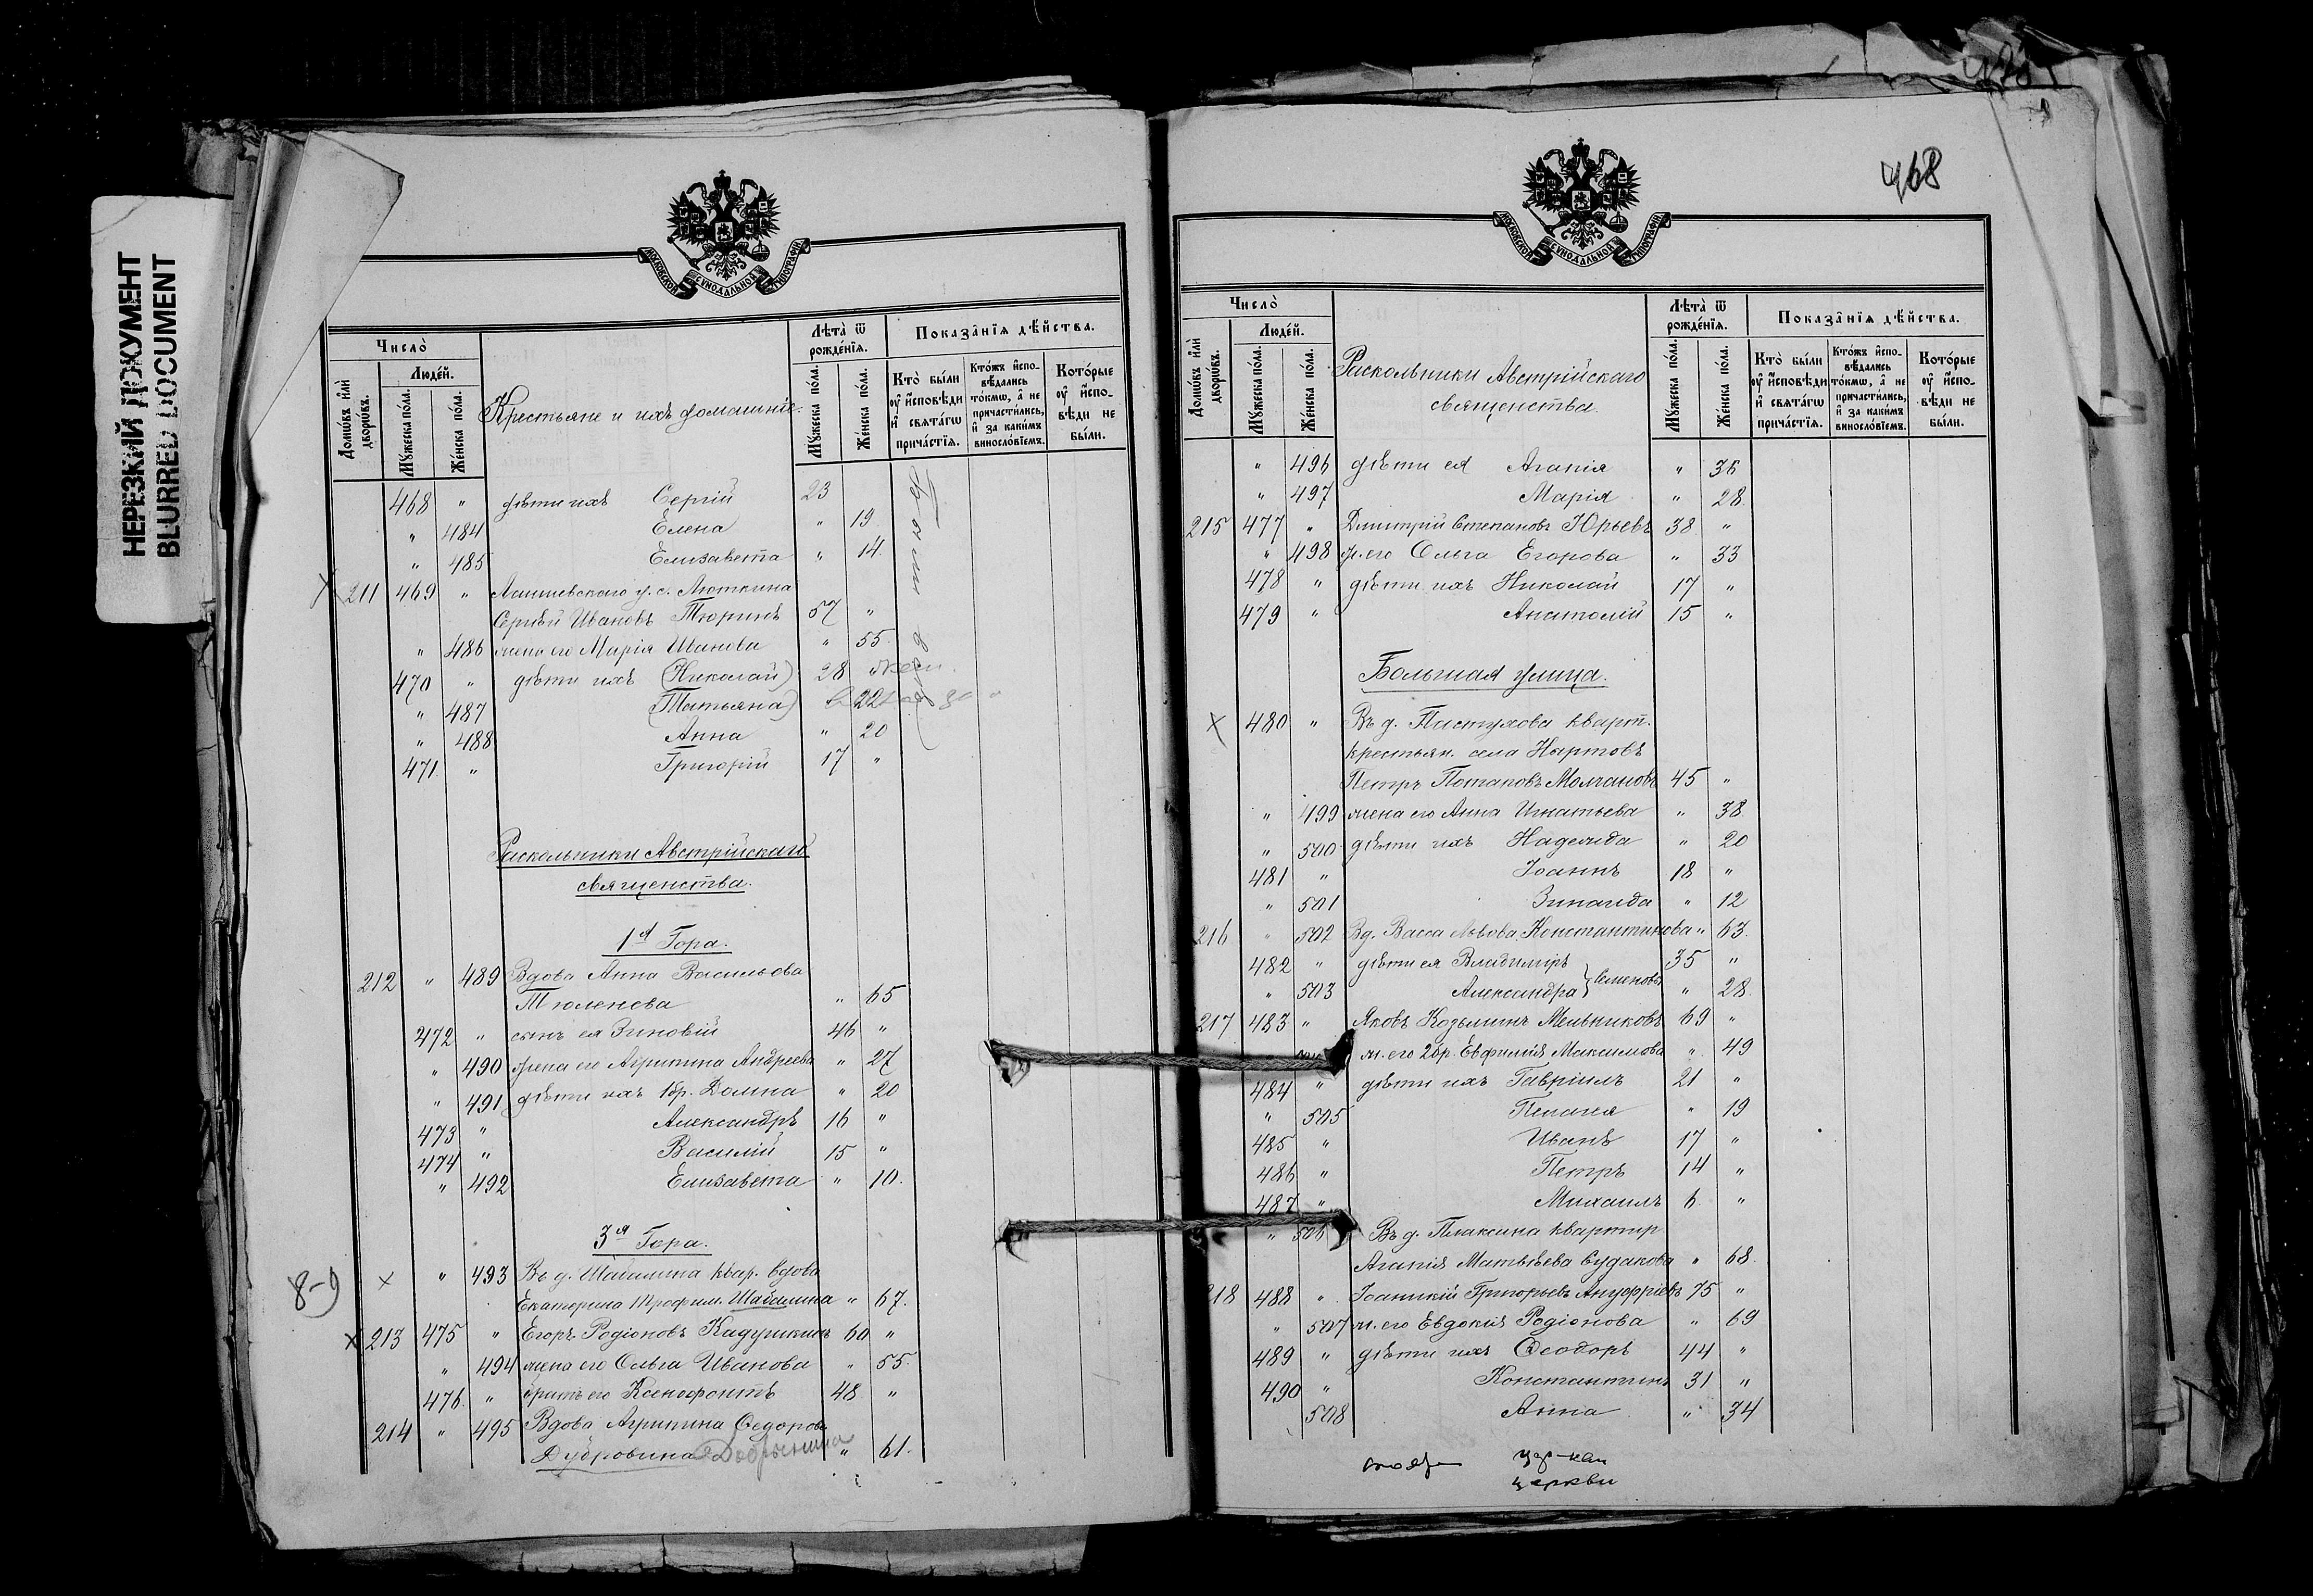 НЕРЕЗКИЙ ДОКУМЕНТ
BLURRED DOCUMENT
МОСКОВСКОЙ СѴНОДАЛЬНОЙ ТИПОГРАФІИ
Число̀
Домѡ́въ и҆лѝ дворѡ́въ.
Люде́й.
Мꙋ́жеска по́ла.
Же́нска по́ла.
Крестьяне и ихъ домашніе.
Лѣ́та ѿ рожде́нїѧ.
Мꙋ́жеска по́ла.
Же́нска по́ла.
Показа̑нїѧ дѣ́йства.
Кто̀ бы́ли ᲂу҆ и҆сповѣди и҆ свѧта́гѡ прича́стїѧ.
Кто́жъ и҆спо-вѣ́дались то́кмѡ, а҆ не причасти́лись, и҆ за каки́мъ винословїемъ.
Кото́рые ᲂу҆ и҆спо-вѣди не бы́ли.
468 " дѣти ихъ Сергій 23
" 484 Елена " 19
" 485 Елизавета " 14.
211 469 " Лаишевскаго у. с. Люткина
Сергѣй Ивановъ Тюринъ 57 "
" 486 жена его Марія Иванова " 55.
470 " дѣти ихъ (Николай) 28
" 487 (Татьяна) 22
" 488 Анна " 20
471. " Григорій 17 "
Раскольники Австрійскаго
священства.
1я Гора.
212 " 489 Вдова Анна Васильева
Тюленева " 65
472 " сынъ ея Зиновій 46 "
" 490 жена его Агрипина Андреева " 27
" 491 дѣти ихъ 1бр. Домна " 20
473 " Александръ 16 "
474 " Василій 15 "
" 492 Елизавета " 10.
3я Гора.
8-9 × " 493 Въ д. Шабалина квар. вдова
Екатерина Трофим. Шабалина " 67.
× 213 475 " Егоръ Родіоновъ Кадушкинъ 60 "
" 494 жена его Ольга Иванова " 55.
476. " братъ его Ксенофонтъ 48. "
214 " 495 Вдова Агрипина Ѳедорова
Дубровина Добрынина " 61.
468
МОСКОВСКОЙ СѴНОДАЛЬНОЙ ТИПОГРАФІИ
Число̀
Домѡ́въ и҆лѝ дворѡ́въ.
Люде́й.
Мꙋ́жеска по́ла.
Же́нска по́ла.
Раскольники Австрійскаго
священства.
Лѣ́та ѿ рожде́нїѧ.
Мꙋ́жеска по́ла.
Же́нска по́ла.
Показа̑нїѧ дѣ́йства.
Кто̀ бы́ли ᲂу҆ и҆сповѣди и҆ свѧта́гѡ прича́стїѧ.
Кто́жъ и҆спо-вѣ́дались то́кмѡ, а҆ не причасти́лись, и҆ за каки́мъ винословїемъ.
Кото́рые ᲂу҆ и҆спо-вѣди не бы́ли.
" 496 дѣти ея Агапія " 36
" 497 Марія " 28.
215 477 " Дмитрій Степановъ Юрьевъ 38. "
" 498 ж. его Ольга Егорова " 33
478 " дѣти ихъ Николай 17 "
479 " Анатолій 15 "
Большая улица.
× 480 " Въ д. Пастухова кварт.
крестьян. села Нартовъ
Петръ Потаповъ Молчановъ 45 "
" 499 жена его Анна Игнатьева " 38
" 500 дѣти ихъ Надежда " 20
481 " Іоаннъ 18 "
" 501 Зинаида " 12
216 " 502 Вд. Васса Львова Константинова " 63.
482 " дѣти ея Владиміръ 35 "
" 503 Александра } Семеновы " 28.
217 483 " Яковъ Козьминъ Мельниковъ 69 "
ж. его 2бр. Евфимія Максимова " 49
484 " дѣти ихъ Гавріилъ 21 "
" 505 Пелагея " 19
485 " Иванъ 17 "
486 " Петръ 14 "
487 " Михаилъ 6. "
" 506 Въ д. Плаксина квартир
Агапія Матвѣева Судакова " 68.
218 488 " Іоаникій Григорьевъ Ануфріевъ 75 "
" 507 ж. его Евдокія Родіонова " 69
489 " дѣти ихъ Ѳеодоръ 44 "
490 " Константинъ 31 "
508 Анна " 34
церкви